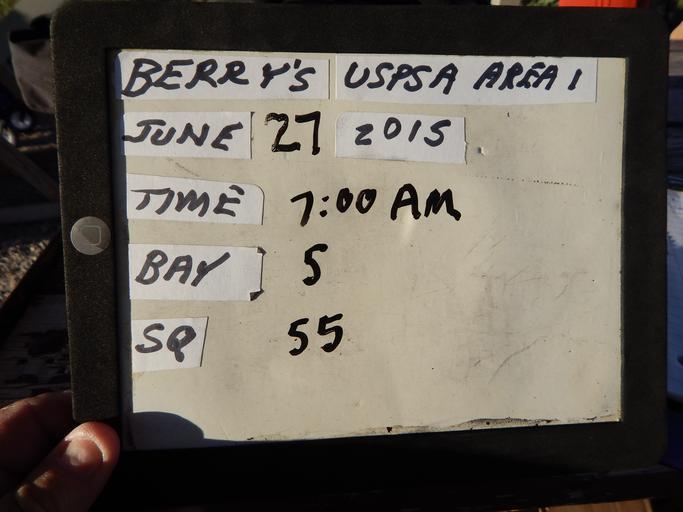 BERRY'S USPSA AREA 1
JUNE 27 2015
TIME 7:00 AM
BAY 5
SQ 55